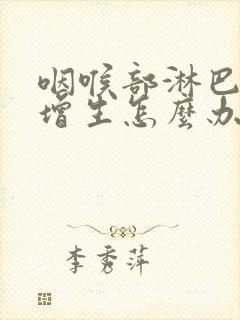 咽喉部淋巴
增生怎麼办
李秀萍